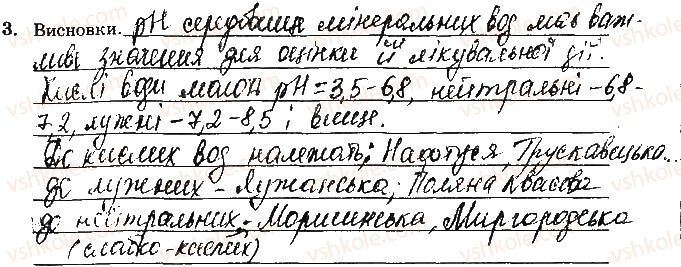 3. Висновки. pH середовища мінеральних вод мають важ-
ливе значення для оцінки їй лікувальної дії.
Кислі води мають pH = 3,5-6,8, нейтральні - 6,8-
7,2, лужні - 7,2-8,5 і вище.
До кислих вод належать: Нафтуся, Трускавецька...
до лужних - Лужанська; Поляна Квасова
до нейтральних: Моршинська, Миргородська
(слабко-кислих)